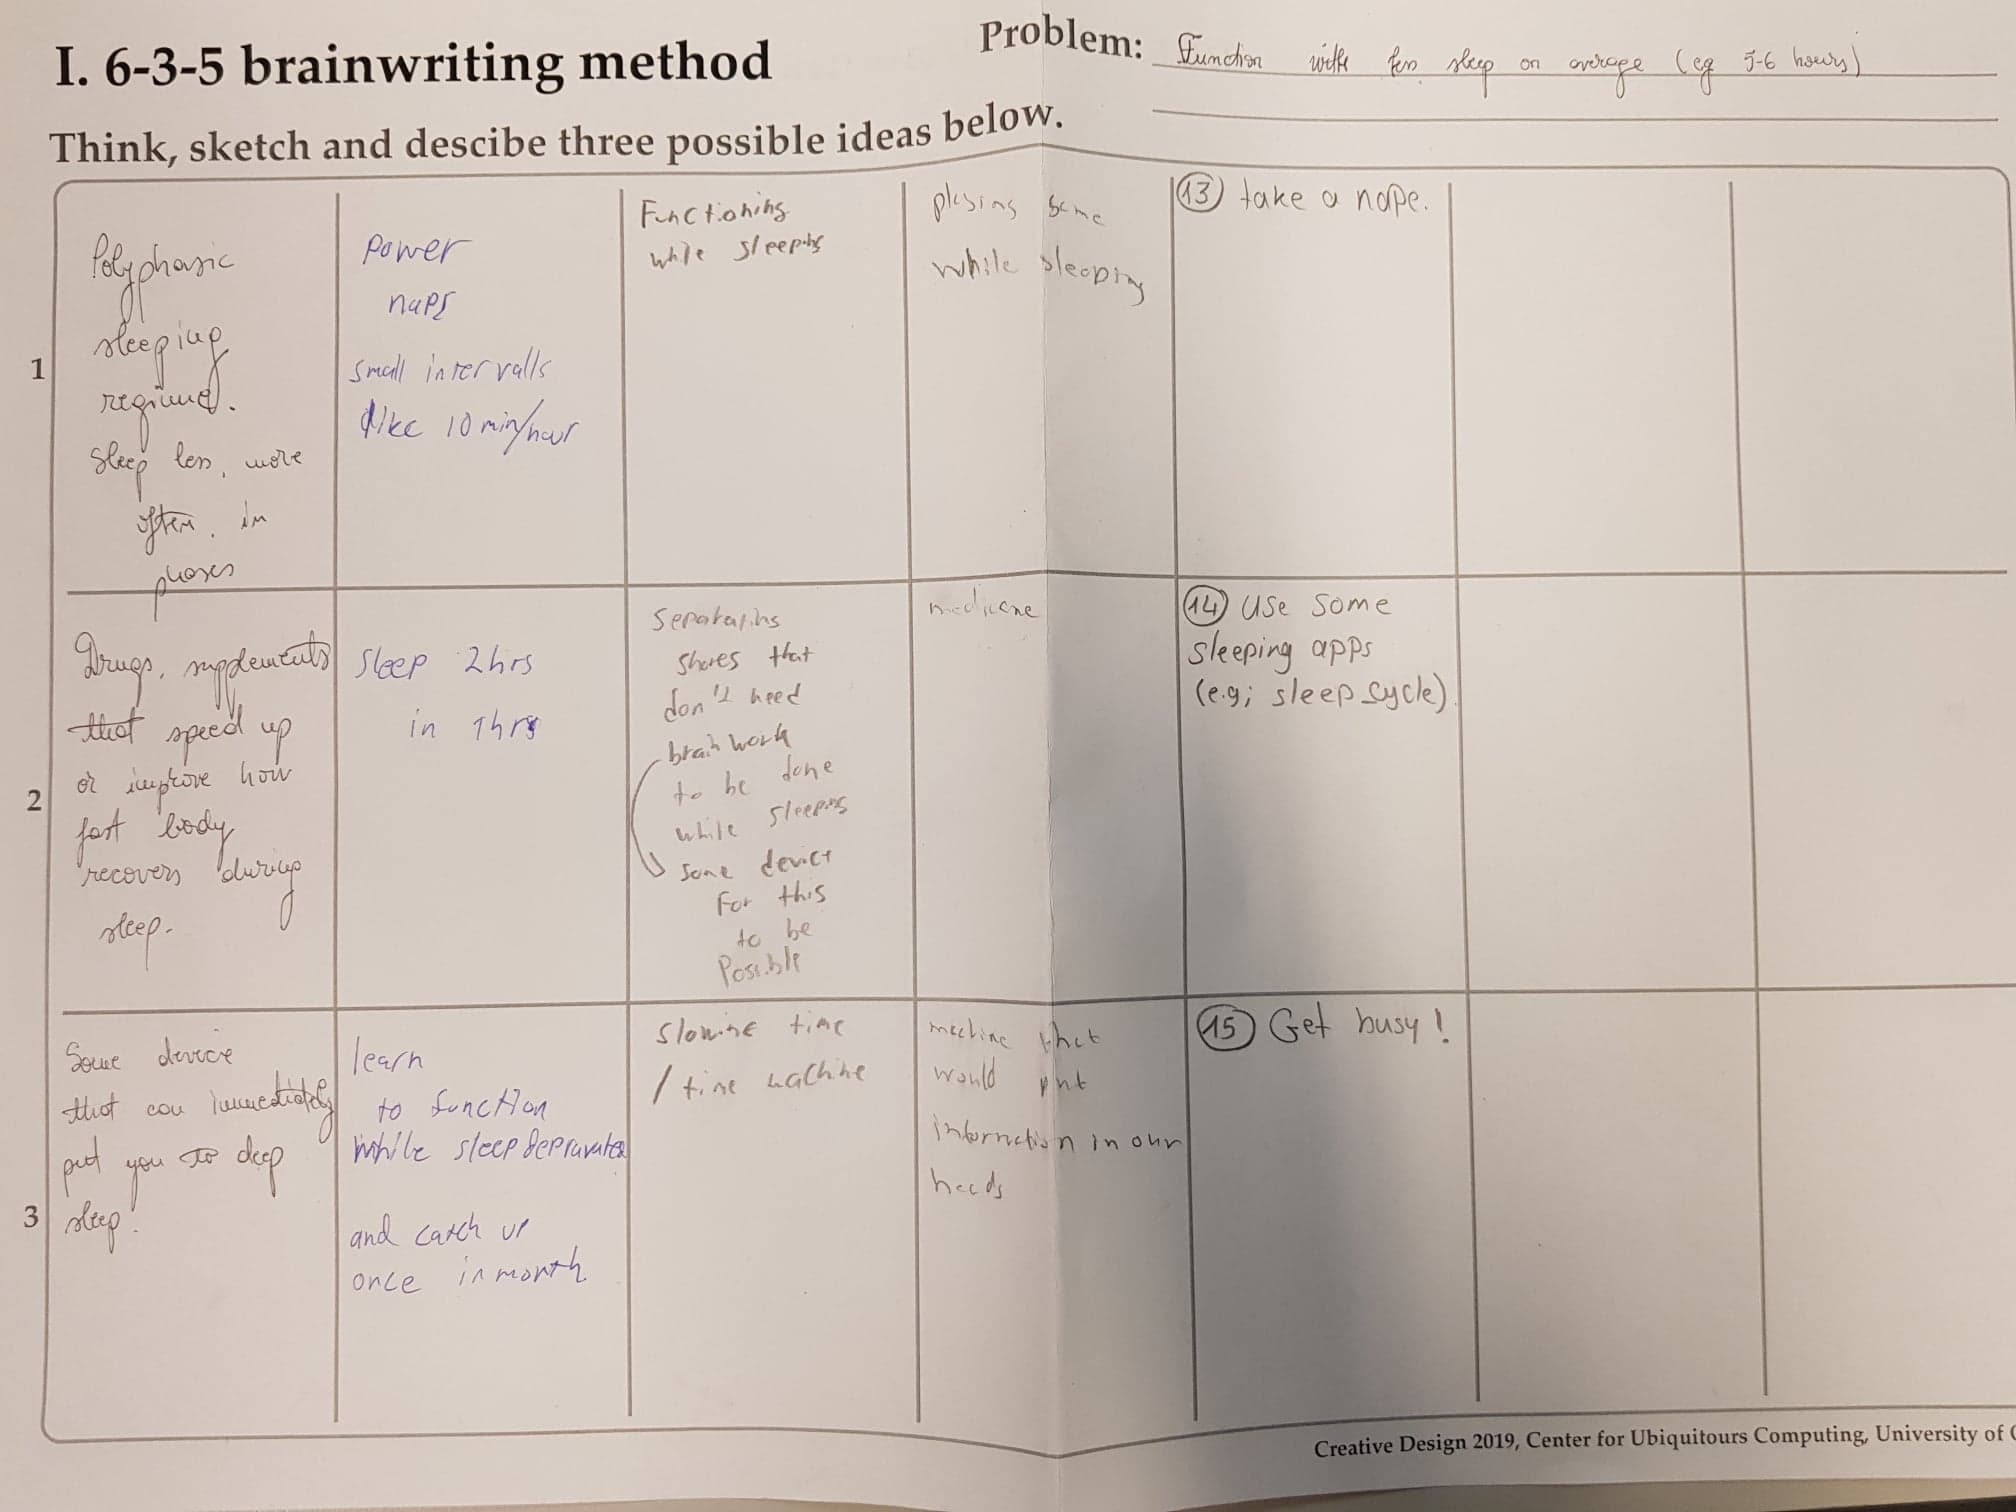 I. 6-3-5 brainwriting method
Problem: Function with less sleep on average (eg 5-6 hours)
Think, sketch and descibe three possible ideas below.
1
Polyphasic
sleeping
regime.
Sleep less, more
often, in
phases
Power
naps
small intervalls
like 10 min/hour
Functioning
while sleeping
playing game
while sleeping
13 take a nape.
2
Drugs, supplements
that speed up
or improve how
fast body
recovers during
sleep.
sleep 2hrs
in 1hrs
Separating
shores that
don't need
brain work
to be done
while sleeping
some device
For this
to be
Possible
medicine
14 use some
sleeping apps
(e.g; sleep cycle)
3
Some device
that can immediately
put you to deep
sleep.
learn
to function
while sleep depravated
and catch up
once in month
Slowing time
/ time machine
machine that
would put
information in our
heads
15 Get busy!
Creative Design 2019, Center for Ubiquitours Computing, University of